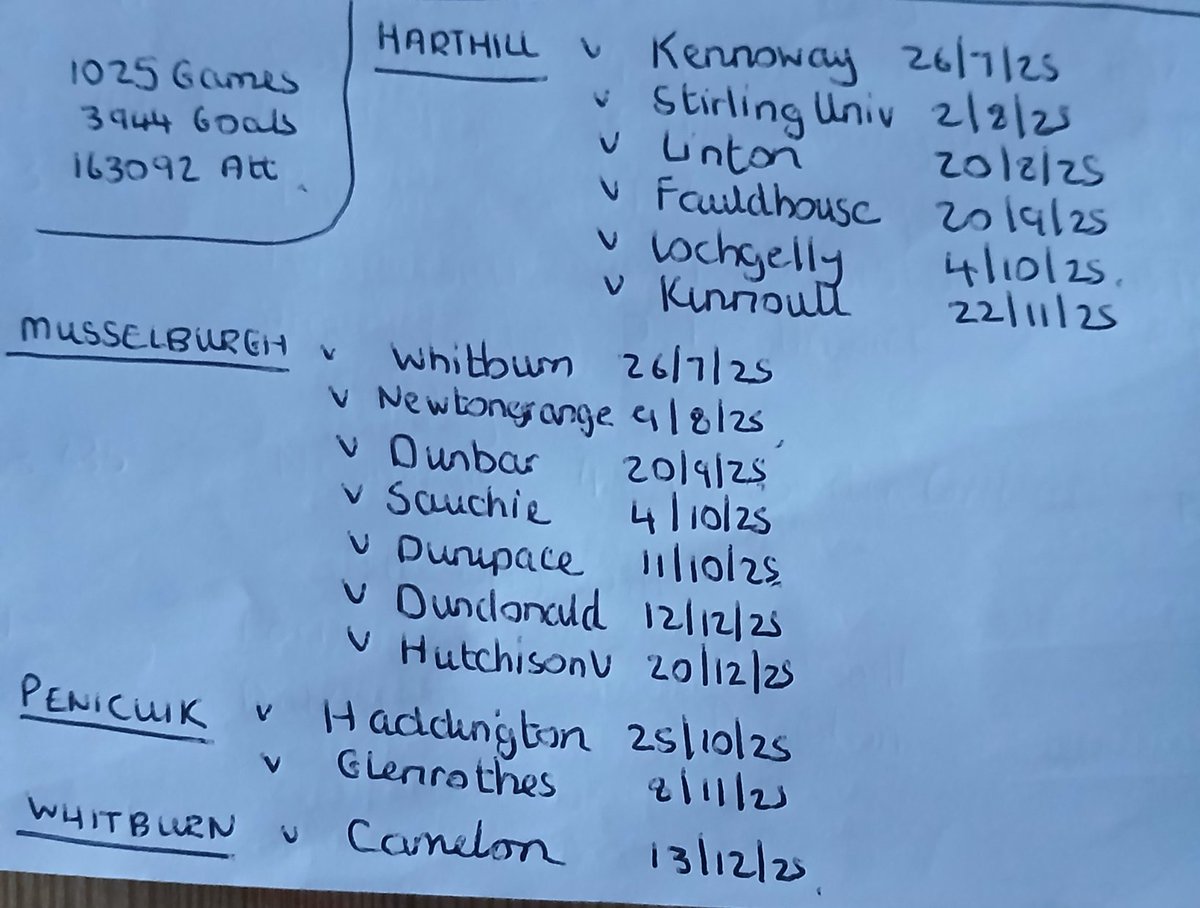 1025 Games
3944 Goals
163092 Att.
HARTHILL v Kennoway 26/7/25
v Stirling Univ 2/8/25
v Linton 20/8/25
v Fauldhouse 20/9/25
v Lochgelly 4/10/25.
v Kinnoull 22/11/25
MUSSELBURGH v Whitburn 26/7/25
v Newtongrange 9/8/25
v Dunbar 20/9/25
v Sauchie 4/10/25
v Dunipace 11/10/25
v Dundonald 12/12/25
v Hutchison V 20/12/25
PENICUIK v Haddington 25/10/25
v Glenrothes 8/11/25
WHITBURN v Camelon 13/12/25.